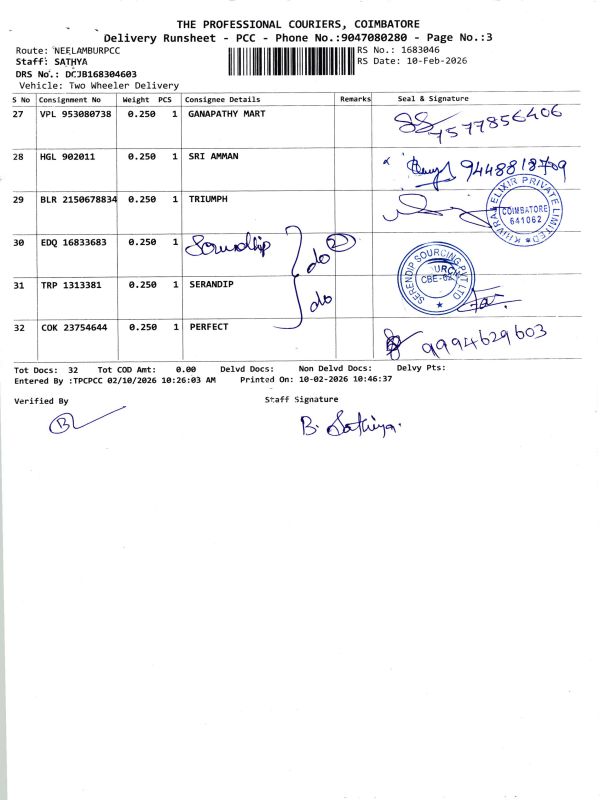 THE PROFESSIONAL COURIERS, COIMBATORE
Delivery Runsheet - PCC - Phone No.:9047080280 - Page No.:3
Route: NEELAMBURPCC
RS No.: 1683046
Staff: SATHYA
RS Date: 10-Feb-2026
DRS No.: DCJB168304603
Vehicle: Two Wheeler Delivery
S No Consignment No Weight PCS Consignee Details Remarks Seal & Signature
27 VPL 953080738 0.250 1 GANAPATHY MART 7577856406
28 HGL 902011 0.250 1 SRI AMMAN 9448818709
29 BLR 2150678834 0.250 1 TRIUMPH
KHIVRAJ ELIXIR PRIVATE LIMITED
COIMBATORE
641062
30 EDQ 16833683 0.250 1 do 2
SERENDIP SOURCING PVT LTD
CBE-62
31 TRP 1313381 0.250 1 SERANDIP do
32 COK 23754644 0.250 1 PERFECT 9994629603
Tot Docs: 32 Tot COD Amt: 0.00 Delvd Docs: Non Delvd Docs: Delvy Pts:
Entered By :TPCPCC 02/10/2026 10:26:03 AM Printed On: 10-02-2026 10:46:37
Verified By Staff Signature
B B. Sathiya.